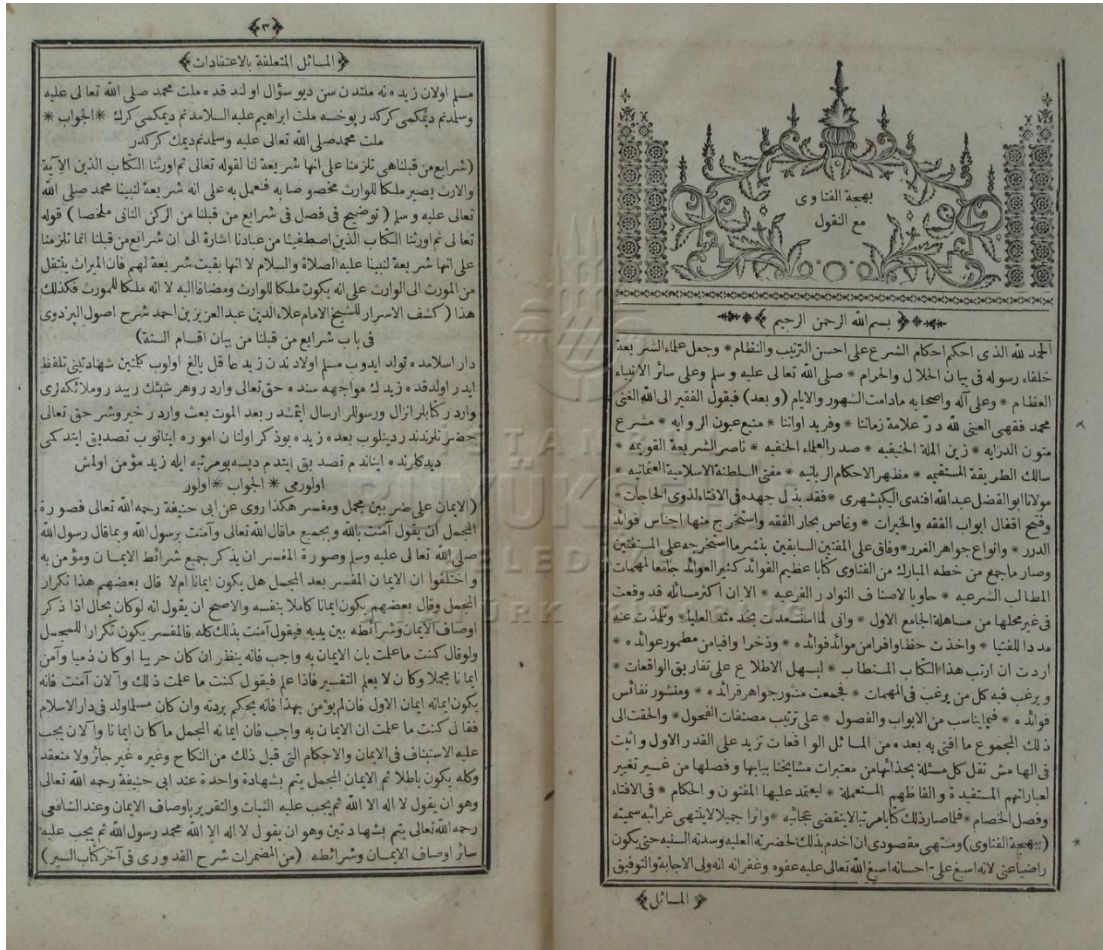 بهجة الفتاوى
مع النقول
بسم الله الرحمن الرحيم
الحمد لله الذى احكم احكام الشرع على احسن الترتيب والنظام * وجعل علماء الشريعة
خلفاء رسوله فى بيان الحلال والحرام * صلى الله تعالى عليه وسلم وعلى سائر الانبياء
العظام * وعلى آله واصحابه مادامت الشهور والايام (وبعد) فيقول الفقير الى الله الغنى
محمد فقهى العينى لله در علامة زماننا * وفريد اواننا * منبع عيون الروايه * مشرع
متون الدرايه * زين الملة الحنيفيه * صدر العلماء الحنفيه * ناصر الشريعة القويمه *
سالك الطريقة المستقيمه * مظهر الاحكام الربانيه * مفتى السلطنة الاسلامية العثمانيه *
مولانا ابو الفضل عبد الله افندى اليكيشهرى * فقد بذل جهده فى الافتاء لذوى الحاجات *
وفتح اقفال ابواب الفقه والخيرات * وغاص بحار الفقه واستخرج منها اجناس فوائد
الدرر * وانواع جواهر الغرر * وفاق على المفتين السابقين بنشر ما استخرجه على المستفتين
وصار ما جمع من خطه المبارك من الفتاوى كتابا عظيم الفوائد كثير العوائد جامعا لمهمات
المطالب الشرعيه * حاويا لاصناف النوادر الفرعيه * الا ان اكثر مسائله قد وقعت
فى غير محلها من مساهلة الجامع الاول * وانى لما استسعدت بخدمته العليا * وتلمذت عنه
مددا للفتيا * واخذت حظا وافرا من موائد فوائده * وذخرا وافيا من مطمور عوائده *
اردت ان ارتب هذا الكتاب المستطاب * ليسهل الاطلاع على تفاريق الواقعات *
ويرغب فيه كل من يرغب فى المهمات * فجمعت منثور جواهر فرائده * ومنشور نفائس
فوائده * فيما يناسب من الابواب والفصول * على ترتيب مصنفات الفحول * والحقت الى
ذلك المجموع ما افتى به بعده من المسائل الواقعات تزيد على القدر الاول واثبت
فى الهامش نقل كل مسئلة بحذائها من معتبرات مشايخنا ببابها وفصلها من غير تغيير
لعباراتهم المستفيدة والفاظهم المستعملة * ليعتمد عليها المفتون والحكام * فى الافتاء
وفصل الخصام * فلما صار ذلك كتابا مرتبا لا ينقضى عجائبه * واثرا جميلا لا ينتهى غرائبه سميته
(ببهجة الفتاوى) ومنتهى مقصودى ان اخدم بذلك لحضرته العليه وسدته السنيه حتى يكون
راضيا عنى لانه اسبغ على احسانه اسبغ الله تعالى عليه عفوه وغفرانه انه ولى الاجابة والتوفيق
المسائل
٣
المسائل المتعلقة بالاعتقادات
مسلم اولان زيده نه ملتدن سن ديو سؤال اولندقده ملت محمد صلى الله تعالى عليه
وسلمدنم ديمكمى كركدر يوخسه ملت ابراهيم عليه السلامدنم ديمكمى كرك * الجواب *
ملت محمد صلى الله تعالى عليه وسلمدنم ديمك كركدر
(شرايع من قبلنا هى تلزمنا على انها شريعة لنا لقوله تعالى ثم اورثنا الكتاب الذين الآية
والارث يصير ملكا للوارث مخصوصا به فنعمل به على انه شريعة لنبينا محمد صلى الله
تعالى عليه وسلم (توضيح فى فصل فى شرايع من قبلنا من الركن الثانى ملخصا) قوله
تعالى ثم اورثنا الكتاب الذين اصطفينا من عبادنا اشارة الى ان شرايع من قبلنا انما تلزمنا
على انها شريعة لنبينا عليه الصلاة والسلام لا انها بقيت شريعة لهم فان الميراث ينتقل
من المورث الى الوارث على انه يكون ملكا للوارث ومضافا اليه لا انه ملكا للمورث فكذلك
هذا (كشف الاسرار للشيخ الامام علاء الدين عبد العزيز بن احمد شرح اصول البزدوى
فى باب شرايع من قبلنا من بيان اقسام السنة)
دار اسلامده تولد ايدوب مسلم اولادندن زيد عاقل بالغ اولوب كلمتين شهادتينى تلفظ
ايدر اولدقده زيدك مواجهه سنده حق تعالى وارد روهر شيئك ربيدر وملائكه لرى
وارد ركتابلر انزال ورسوللر ارسال ايتمشدر بعد الموت بعث واردر خير وشر حق تعالى
حضرتلرندندر دينلوب بعده زيده بو ذكر اولنان اموره اينانوب تصديق ايتدكمى
ديدكلرنده ايناندم تصديق ايتدم ديسه بو مرتبه ايله زيد مؤمن اولمش
اولورمى * الجواب * اولور
(الايمان على ضربين مجمل ومفسر هكذا روى عن ابى حنيفة رحمه الله تعالى فصورة
المجمل ان يقول آمنت بالله وبجميع ما قال الله تعالى وآمنت برسول الله وبما قال رسول الله
صلى الله تعالى عليه وسلم وصورة المفسر ان يذكر جميع شرائط الايمان ومؤمن به
واختلفوا ان الايمان المفسر بعد المجمل هل يكون ايمانا ام لا قال بعضهم هذا تكرار
المجمل وقال بعضهم يكون ايمانا كاملا بنفسه والاصح ان يقول انه لو كان بحال اذا ذكر
اوصاف الايمان وشرائطه بين يديه فيقول آمنت بذلك كله فالمفسر يكون تكرارا للمجمل
ولو قال كنت ما علمت بان الايمان به واجب فانه ينظر ان كان حربيا او كان ذميا وآمن
ايمانا مجملا وكان لا يعلم التفسير فاذا علم فيقول كنت ما علمت ذلك والآن آمنت فانه
يكون ايمانه ايمان الاول فان لم يؤمن بهذا فانه يحكم بردته وان كان مسلما ولد فى دار الاسلام
فقال كنت ما علمت ان الايمان به واجب فان ايمانه المجمل ما كان ايمانا والآن يجب
عليه الاستيناف فى الايمان والاحكام التى قبل ذلك من النكاح وغيره غير جائز ولا منعقد
وكله يكون باطلا ثم الايمان المجمل يتم بشهادة واحدة عند ابى حنيفة رحمه الله تعالى
وهو ان يقول لا اله الا الله ثم يجب عليه الثبات والتقرير باوصاف الايمان وعند الشافعى
رحمه الله تعالى يتم بشهادتين وهو ان يقول لا اله الا الله محمد رسول الله ثم يجب عليه
سائر اوصاف الايمان وشرائطه (من المضمرات شرح القدورى فى آخر كتاب السير)